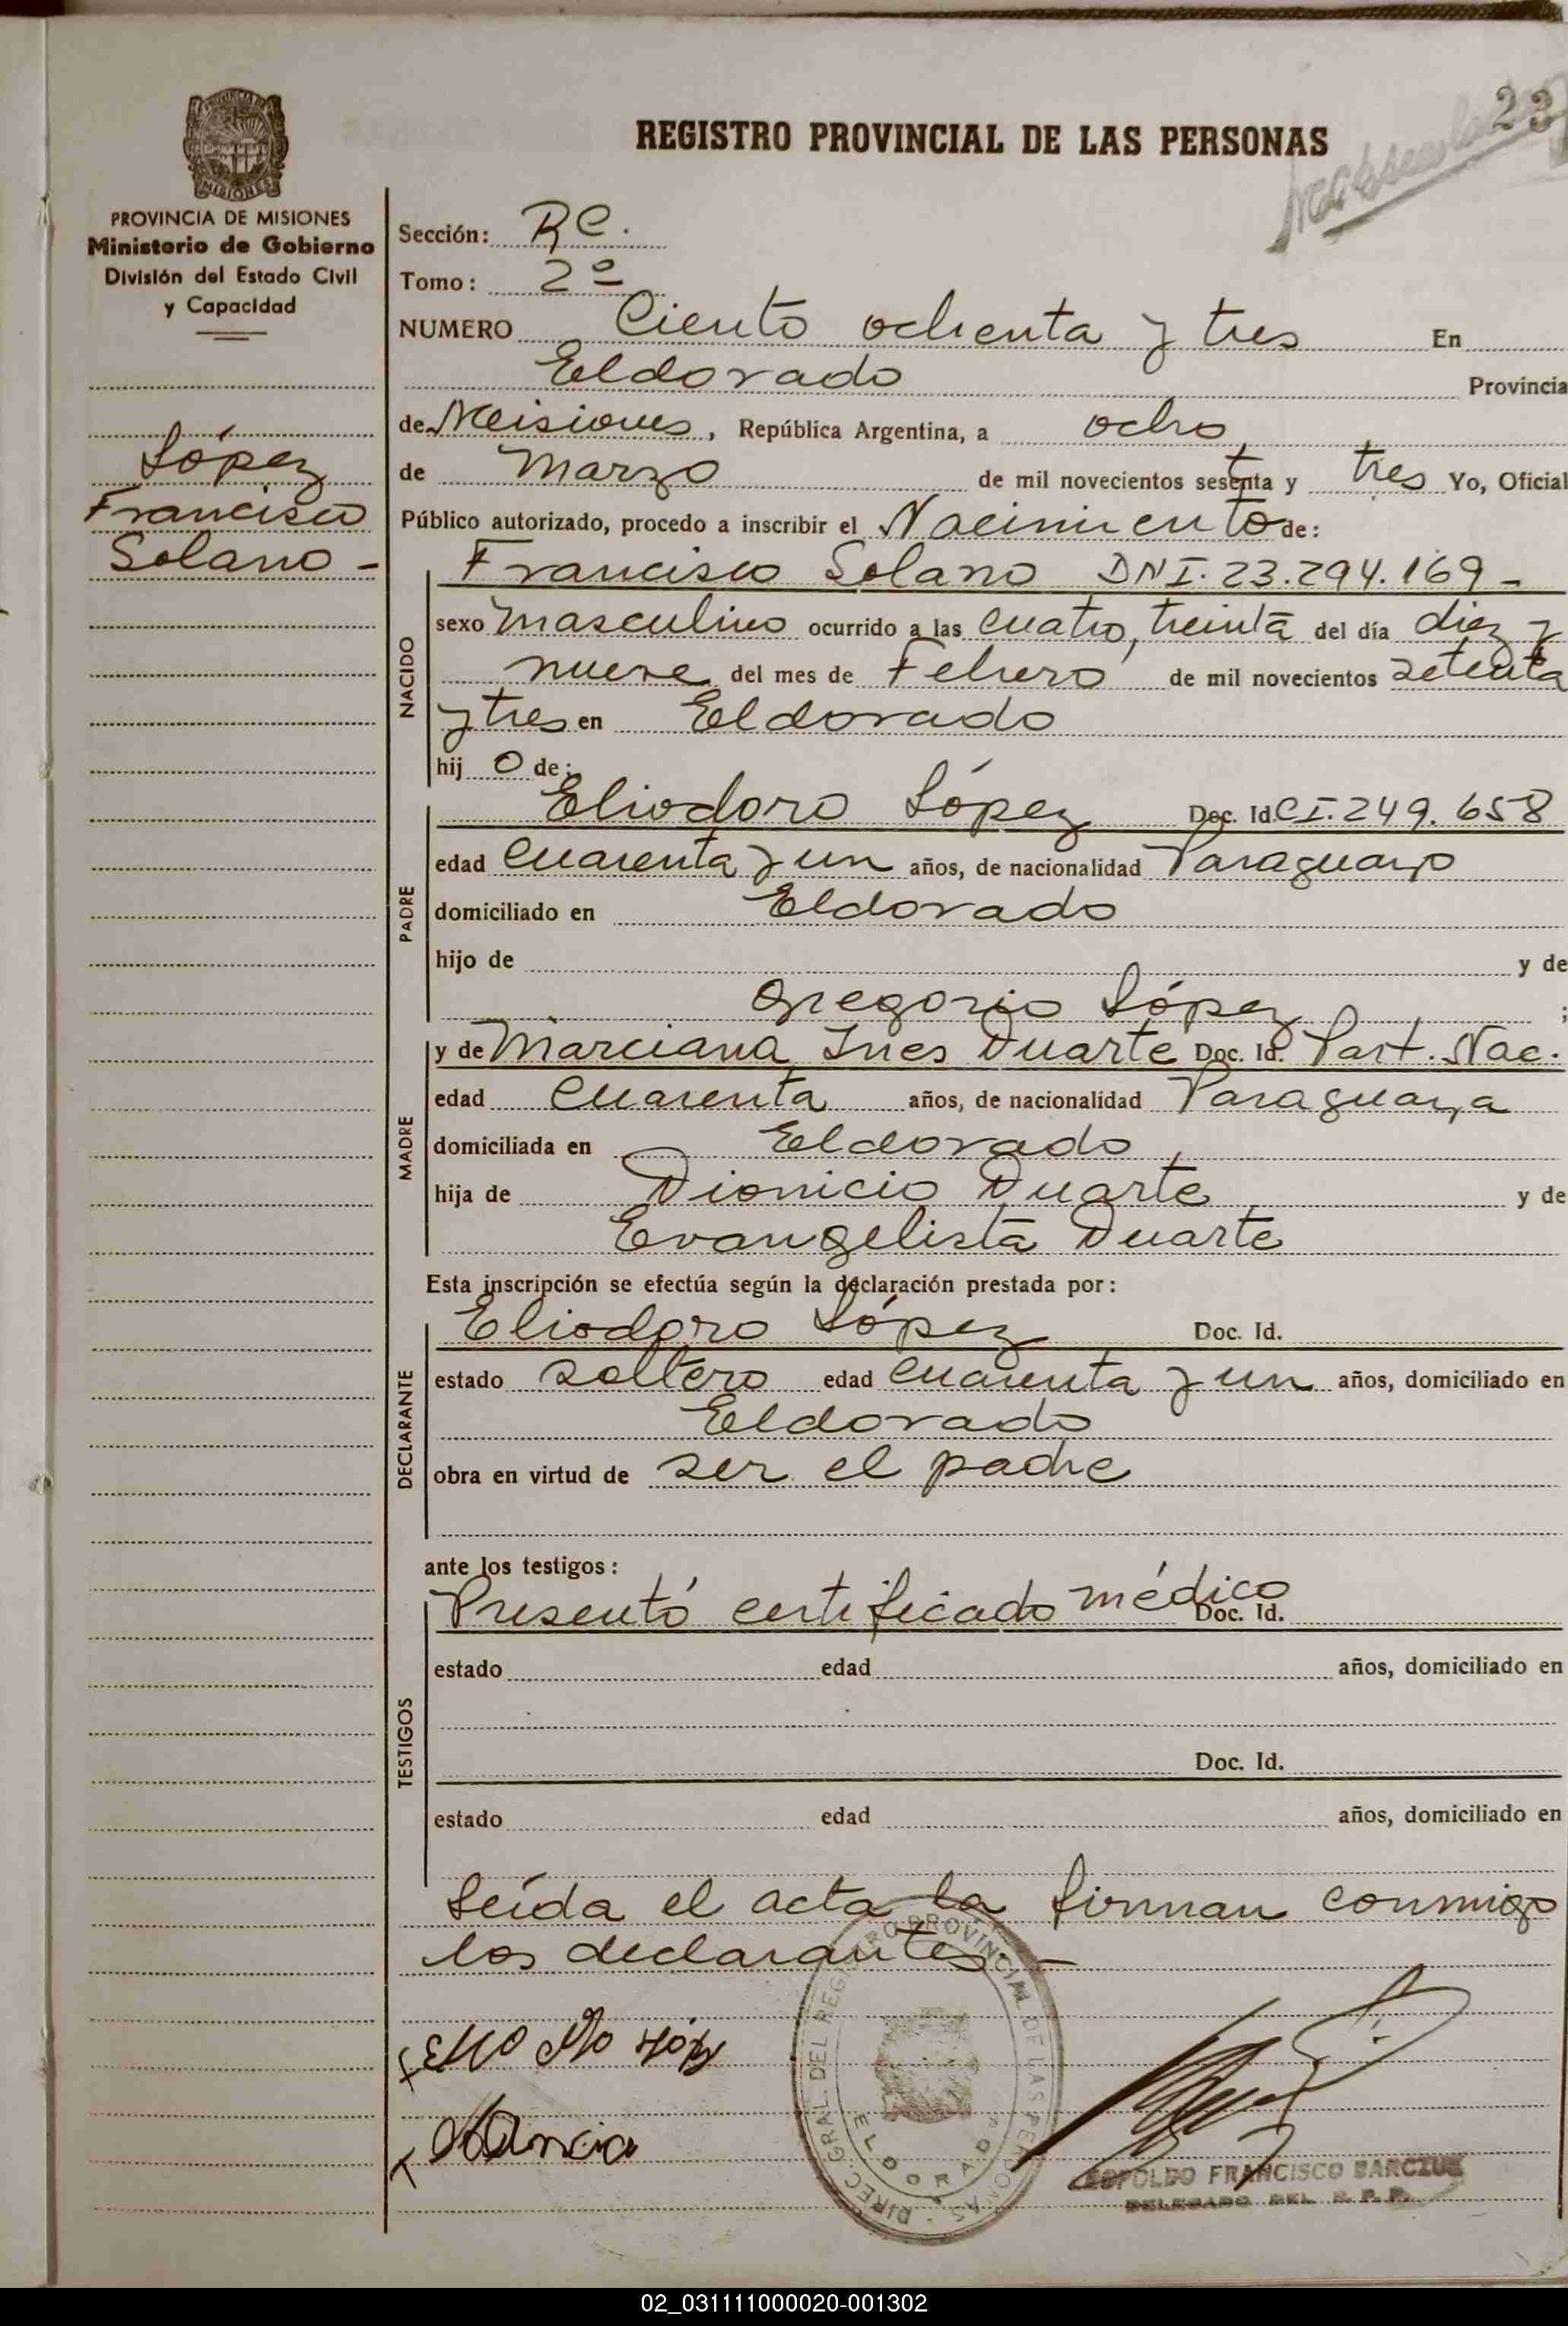 23
REGISTRO PROVINCIAL DE LAS PERSONAS
MISIONES
PROVINCIA DE MISIONES
Ministerio de Gobierno
División del Estado Civil
y Capacidad
López
Francisco
Solano -
Sección: RC.
Tomo: 2º
NUMERO Ciento ochenta y tres En
Eldorado Provincia
de Misiones, República Argentina, a ocho
de Marzo de mil novecientos setenta y tres Yo, Oficial
Público autorizado, procedo a inscribir el Nacimiento de:
NACIDO
Francisco Solano DNI. 23.294.169 -
sexo masculino ocurrido a las cuatro, treinta del día diez y
nueve del mes de Febrero de mil novecientos setenta
y tres en Eldorado
hij o de:
PADRE
Eliodoro López Doc. Id. CI. 249.658
edad cuarenta y un años, de nacionalidad Paraguayo
domiciliado en Eldorado
hijo de y de
Gregorio López ;
MADRE
y de Marciana Ines Duarte Doc. Id. Part. Nac.
edad cuarenta años, de nacionalidad Paraguaya
domiciliada en Eldorado
hija de Dionicio Duarte y de
Evangelista Duarte
Esta inscripción se efectúa según la declaración prestada por:
DECLARANTE
Eliodoro López Doc. Id.
estado soltero edad cuarenta y un años, domiciliado en
Eldorado
obra en virtud de ser el padre
ante los testigos:
TESTIGOS
Presentó certificado médico Doc. Id.
estado edad años, domiciliado en
Doc. Id.
estado edad años, domiciliado en
Leída el acta la firman conmigo
los declarantes. -
DIREC. GRAL. DEL REGISTRO PROVINCIAL DE LAS PERSONAS
ELDORADO
LEOPOLDO FRANCISCO BARCZUK
DELEGADO DEL R. P. P.
02_031111000020-001302